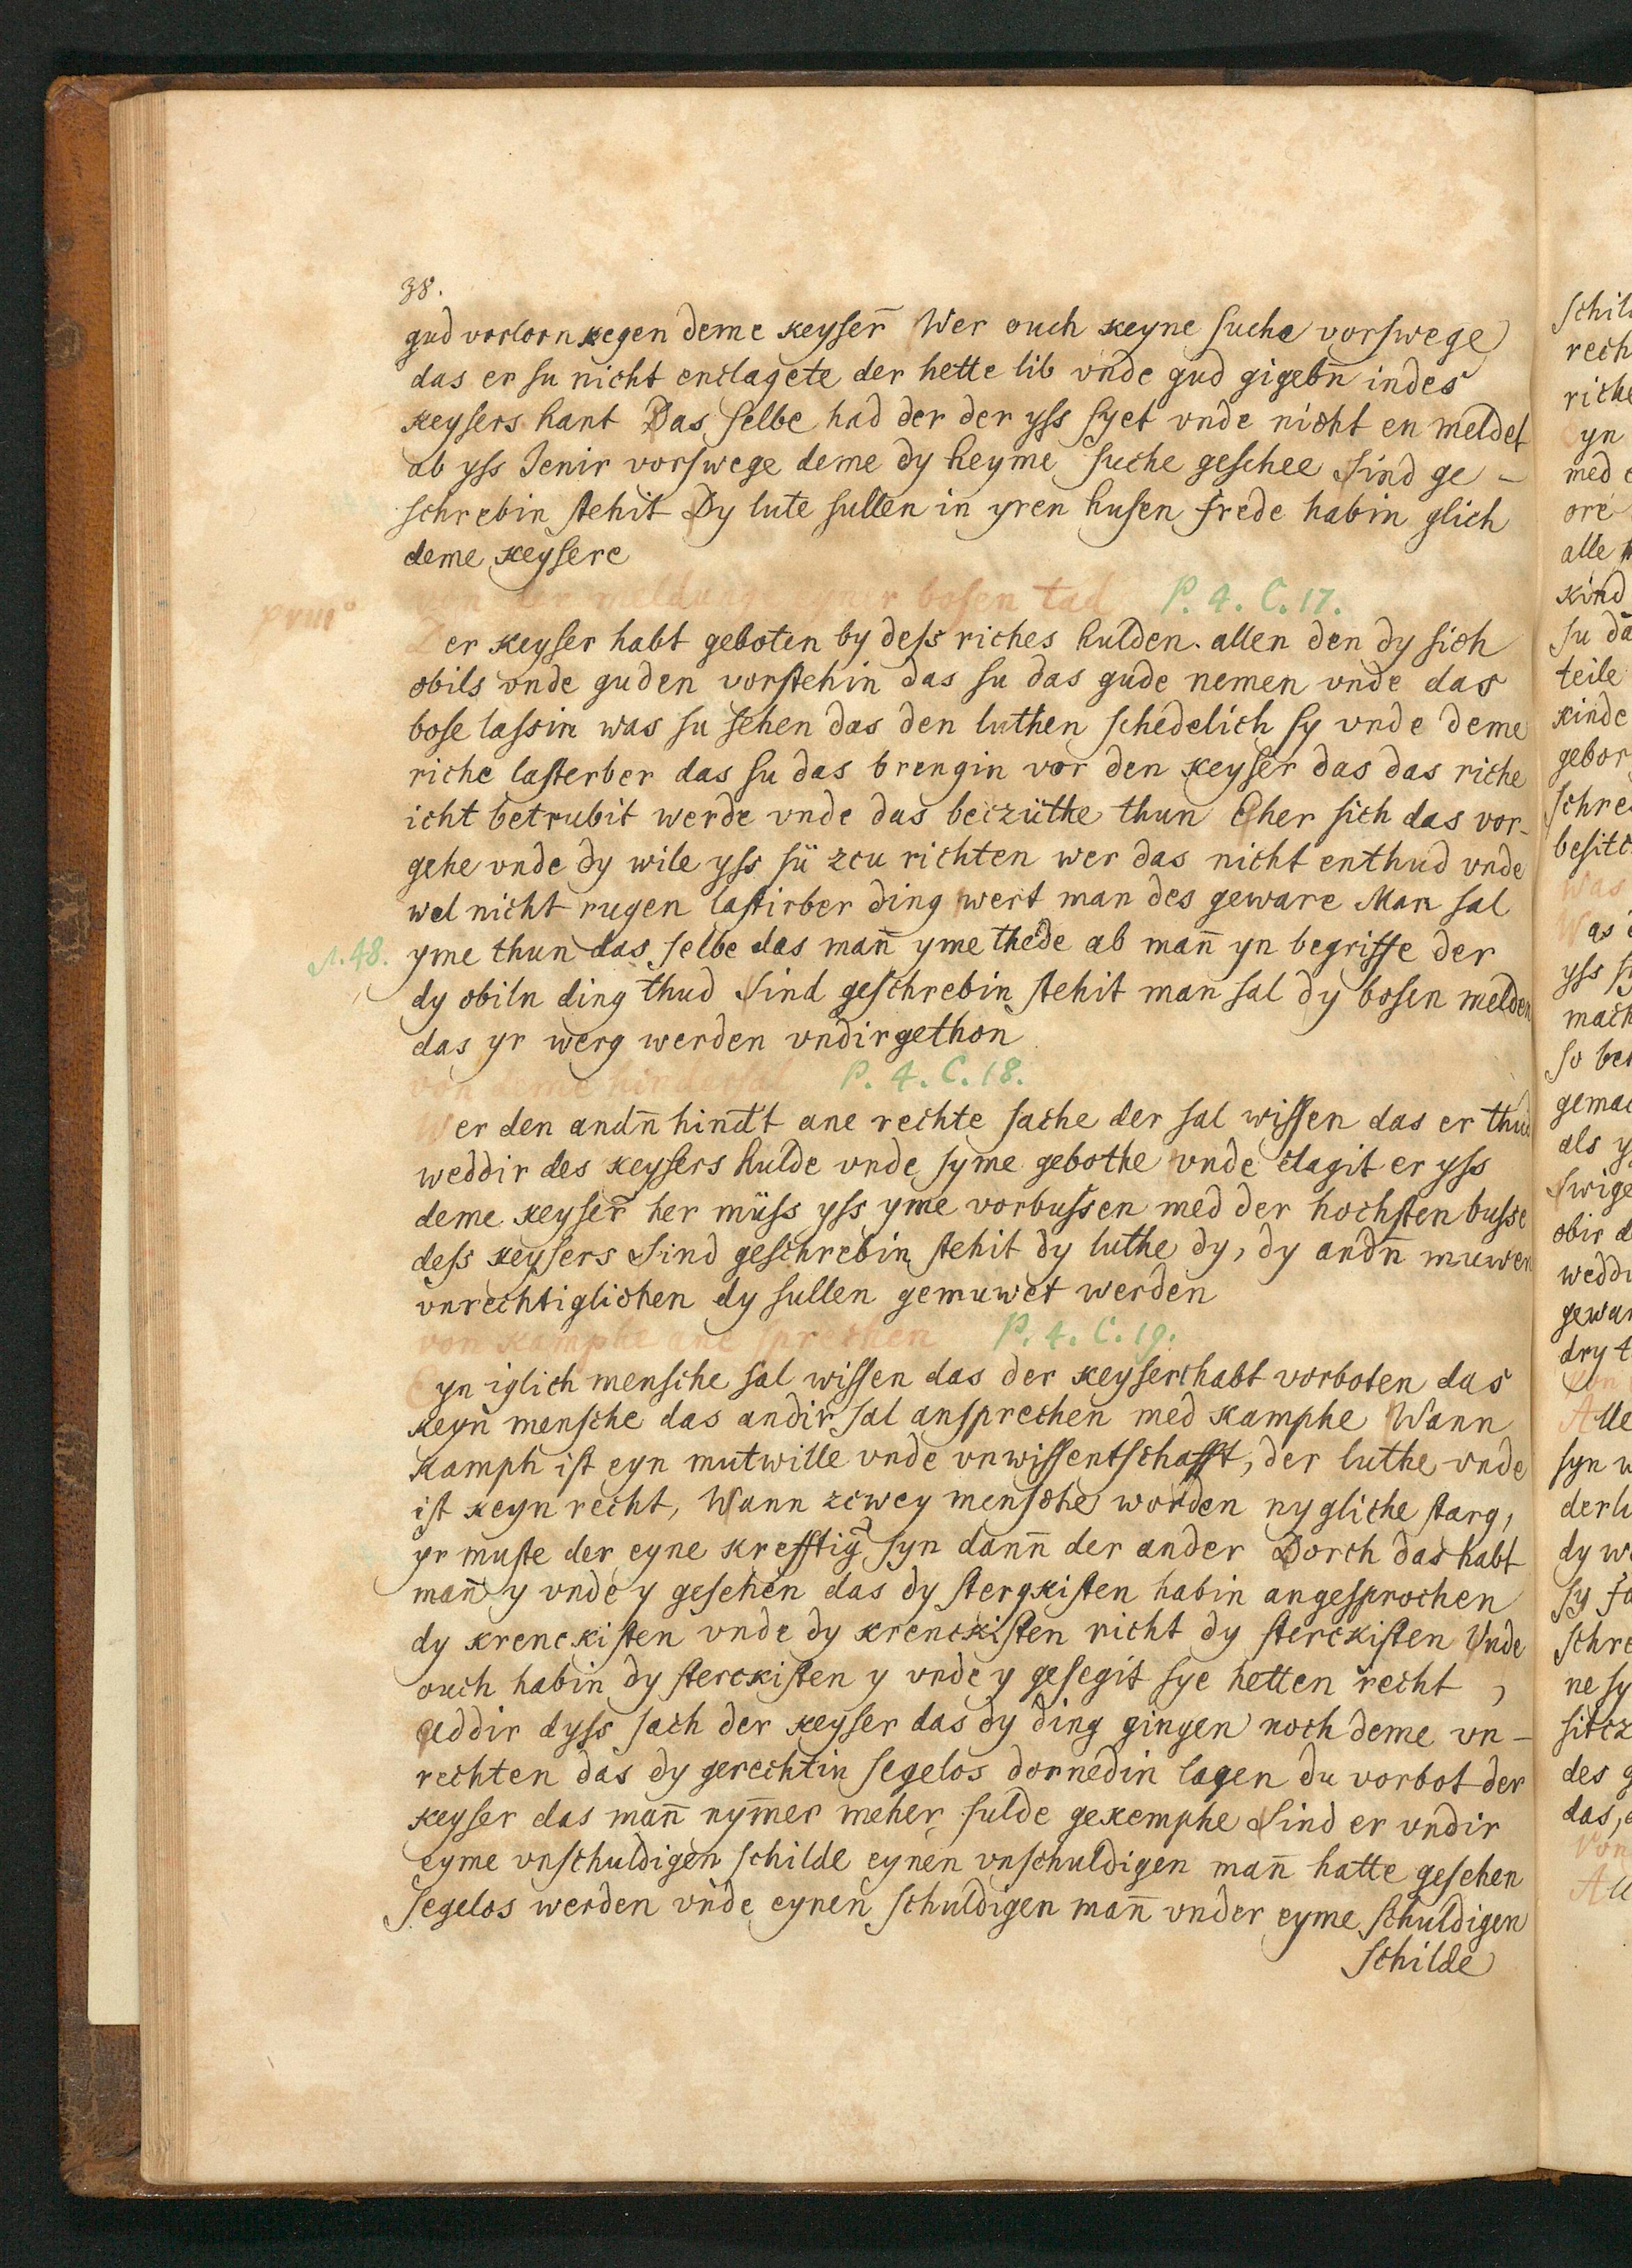 38.
gud vorlorn kegen deme keyser̄ Wer ouch keyne suche vorswege
das er su nicht enclagete der hette lib vnde gud gigebn̄ indes
keysers hant Das selbe had der der yss syet vnde nicht en meldet
ab yss Jenir vorswege deme dy heyme suche geschee Sind ge -
schrebin stehit Dy lute sullen in yren husen frede habin glich
deme keysere
von der meldunge eyner bosen tad P. 4. C. 17.
prm°
Der keyser habt geboten by dess riches hulden. allen den dy sich
obils vnde guden vorstehin das su das gude nemen vnde das
bose lassin was su sehen das den luthen schedelich sy vnde deme
riche lasterber das su das brengin vor den keyser das das riche
icht betrubit werde vnde das beczüthe thun Eher sich das vor-
gehe vnde dy wile yss sü zcu richten wer das nicht enthud vnde
wel nicht rugen lastirber ding wert man des geware Man sal
A. 48. yme thun das selbe das man̄ yme thede ab man̄ yn begriffe der
dy obiln ding thud Sind geschrebin stehit man sal dy bosen melden
das yr werg werden vndirgethon
von deme hindersal P. 4. C. 18.
Wer den andn̄ hindt ane rechte sache der sal wissen das er thud
weddir des keysers hulde vnde syme gebothe vnde clagit er yss
deme keyser̄ her müss yss yme vorbussen med der hochsten busse
dess keysers Sind geschrebin stehit dy luthe dy, dy andn̄ muwen
vnrechtiglichen dy sullen gemuwet werden
von kamphe ane sprechen P. 4. C. 19.
Eyn iglich mensche sal wissen das der keyser habt vorboten das
keyn mensche das andir sal ansprechen med kamphe Wann
kamph ist eyn mutwille vnde vnwissentschafft, der luthe vnde
ist keyn recht, Wann zcwey mensche worden ny gliche starg,
yr muste der eyne krefftig̃ syn dann̄ der ander Dorch das habt
man̄ y vnde y gesehen das dy stergkisten habin angesprochen
dy krenckisten vnde dy krenckisten nicht dy sterckisten Vnde
ouch habin dy sterckisten y vnde y gesegit sye hetten recht ,
addir dyss sach der keyser das dy ding gingen noch deme vn -
rechten das dy gerechtin segelos dornedin lagen du vorbot der
keyser das man̄ nym̄er meher sulde gekemphe Sind er vndir
eyme vnschuldigen schilde eynen vnschuldigen man̄ hatte gesehen
segelos werden vnde eynen schuldigen man̄ vnder eyme schuldigen
schilde